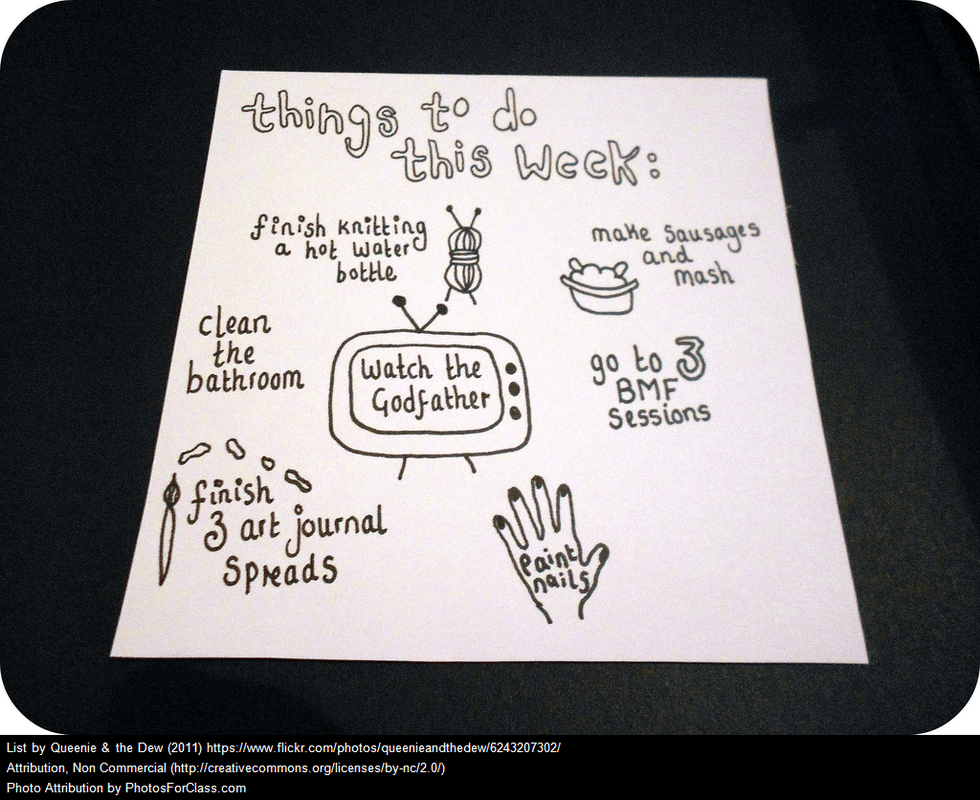 things to do
this week:
finish knitting
a hot water
bottle
make sausages
and
mash
clean
the
bathroom
Watch the
Godfather
go to 3
BMF
Sessions
finish
3 art journal
Spreads
paint
nails
List by Queenie & the Dew (2011) https://www.flickr.com/photos/queenieandthedew/6243207302/
Attribution, Non Commercial (http://creativecommons.org/licenses/by-nc/2.0/)
Photo Attribution by PhotosForClass.com